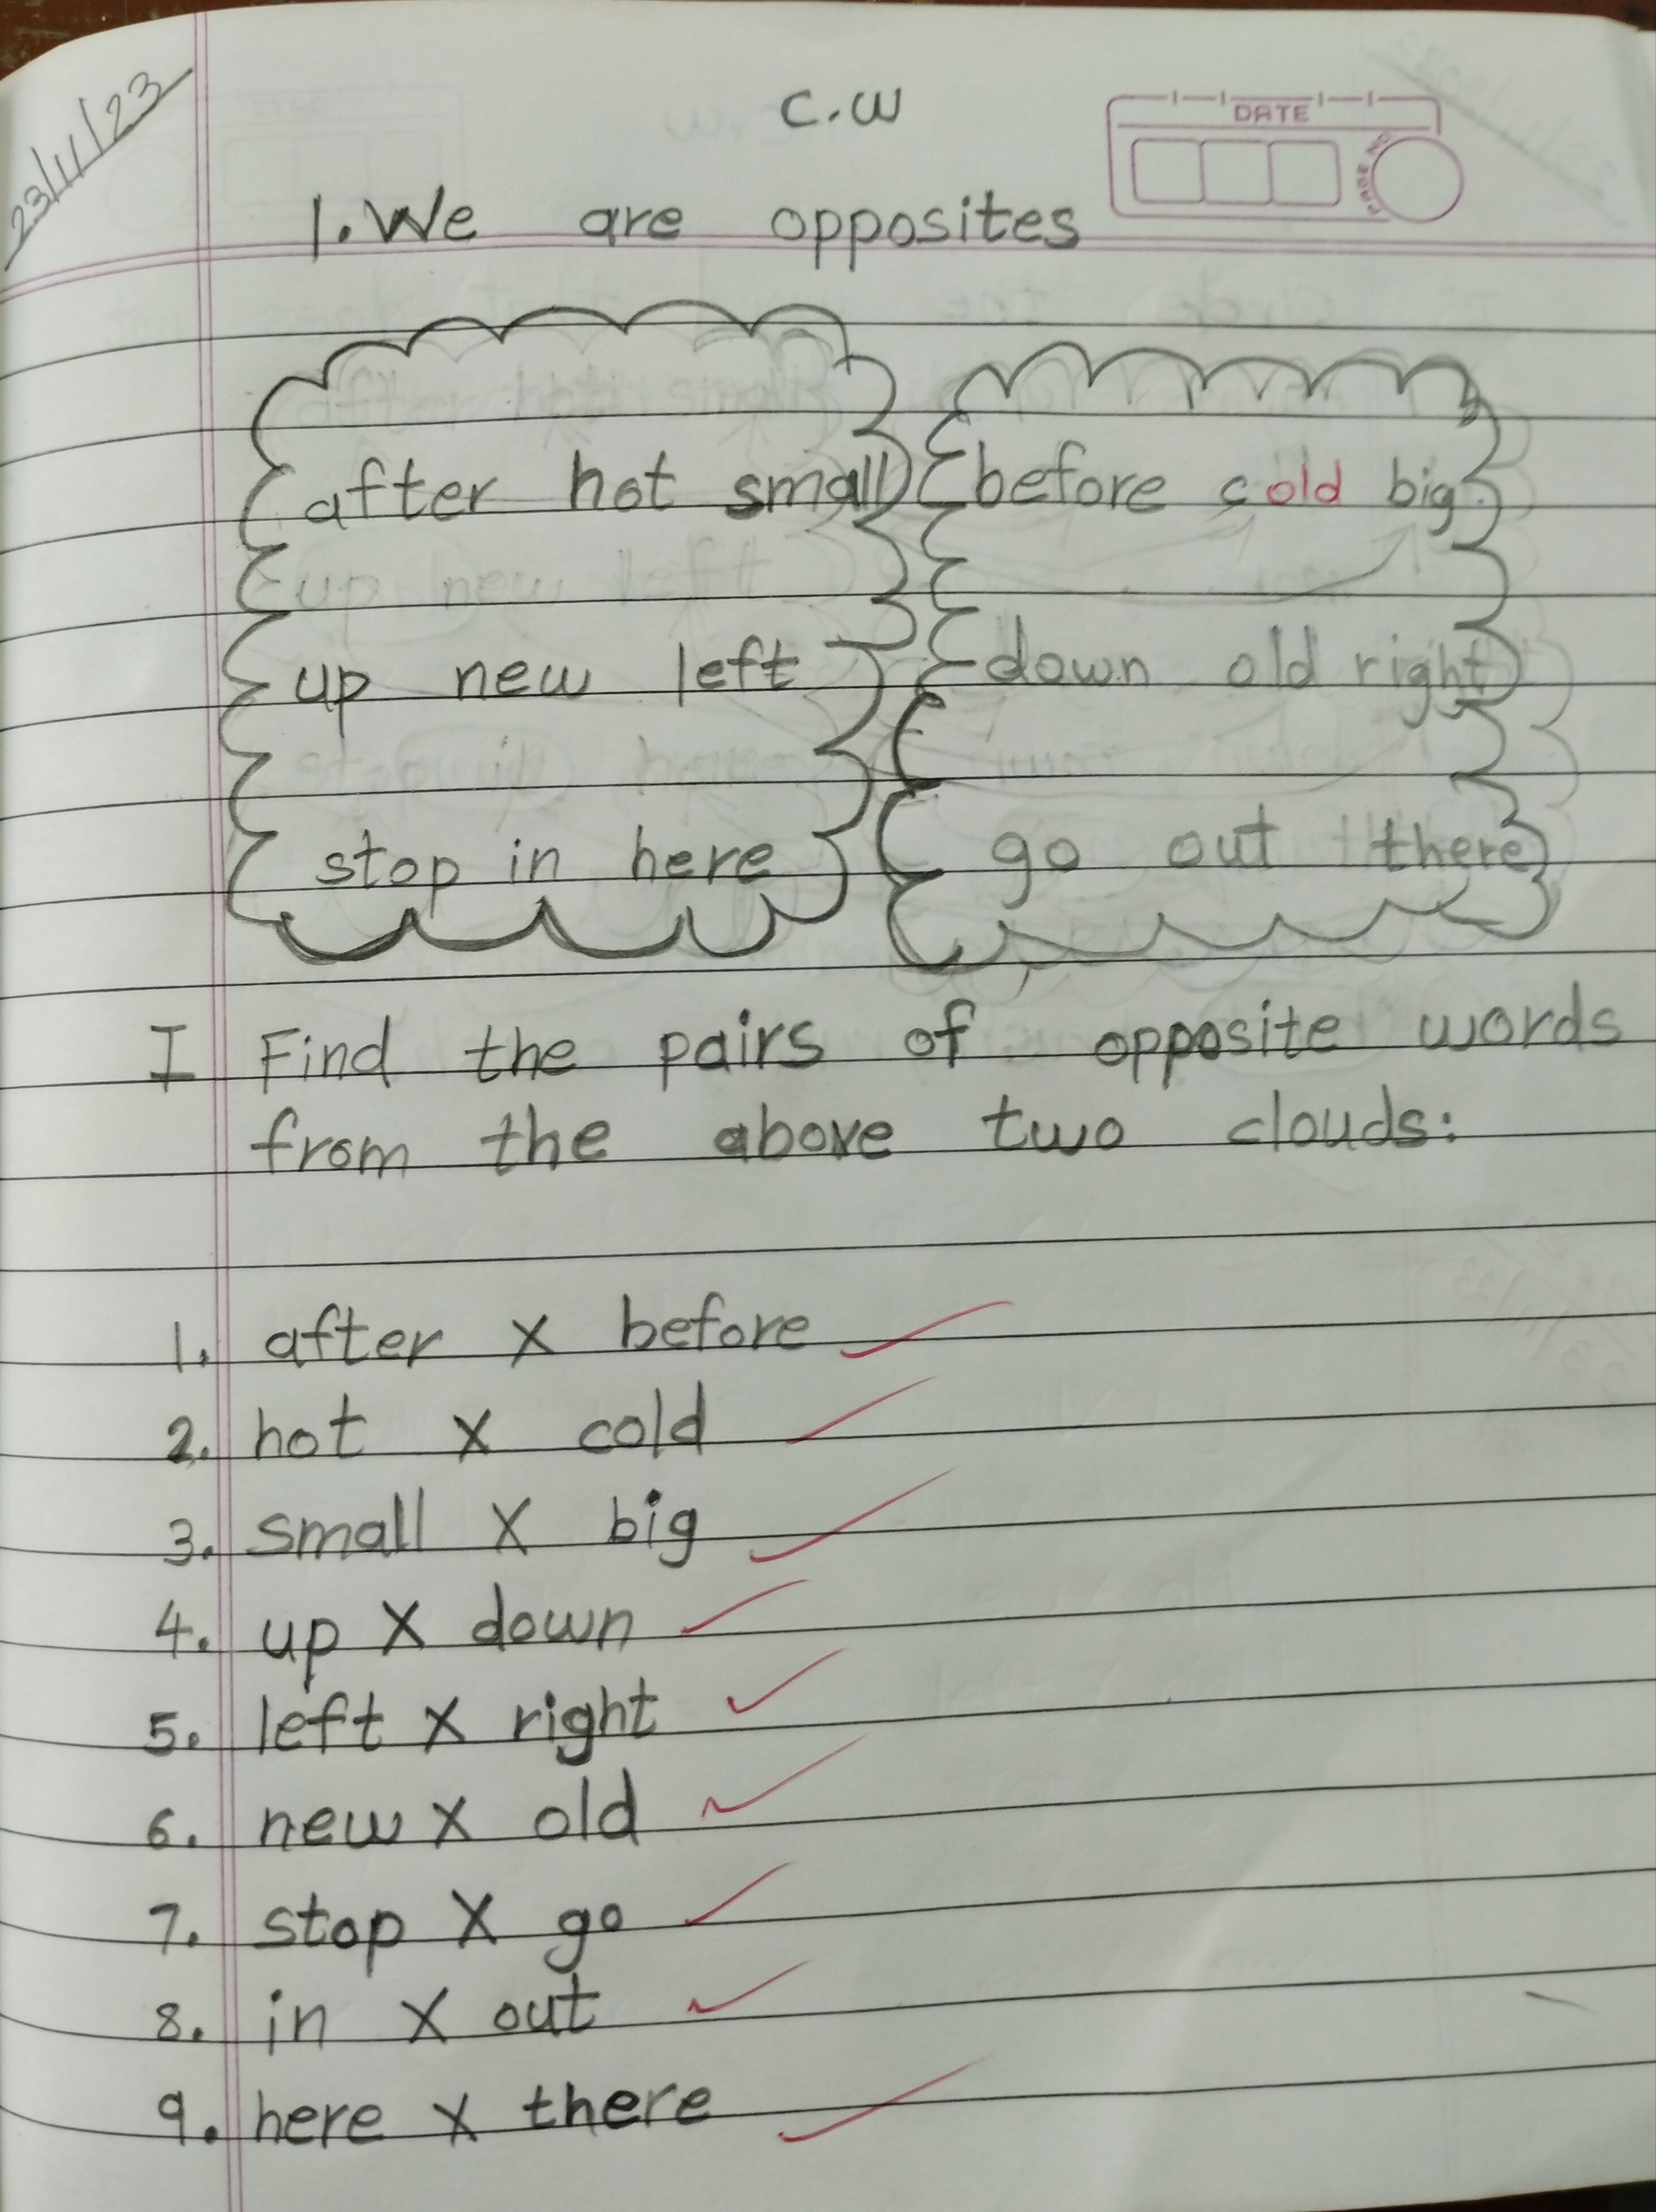 23/11/23
C.W
DATE
PAGE NO.
1. We are opposites
after hot small
before cold big
up new left
down old right
stop in here
go out there
I Find the pairs of opposite words
from the above two clouds:
1. after X before
2. hot X cold
3. small X big
4. up X down
5. left X right
6. new X old
7. stop X go
8. in X out
9. here X there